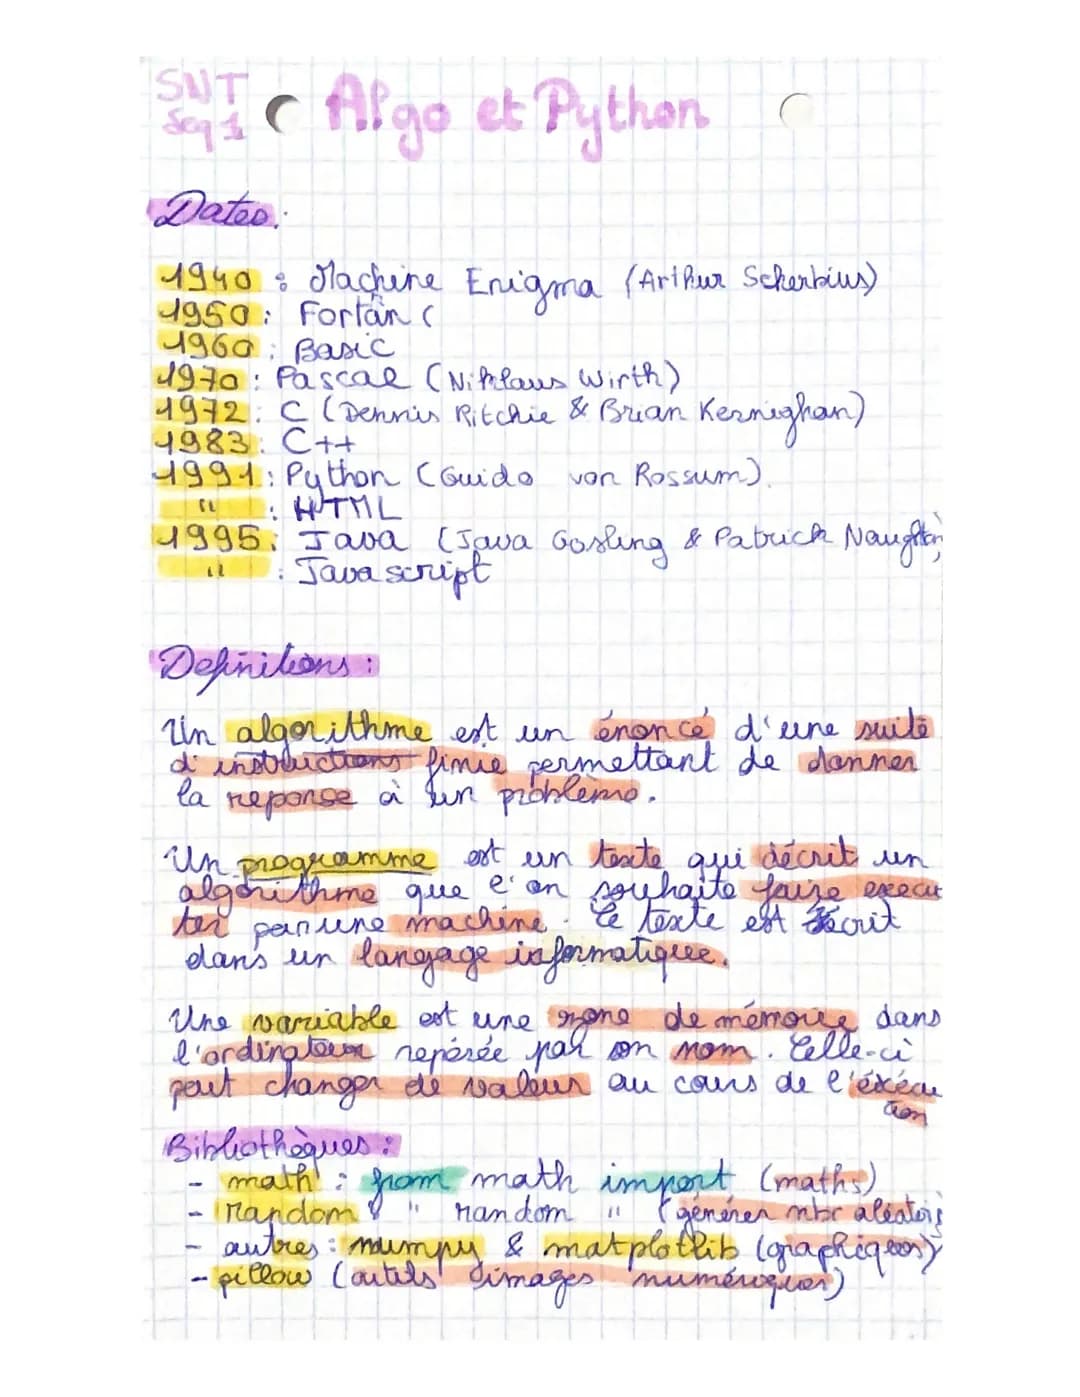 SNT
Seq 1
Algo et Python
Dates:
1940 : Machine Enigma (Arthur Scherbius)
1950 : Fortan (
1960 : Basic
1970 : Pascal (Niklaus Wirth)
1972 : C (Dennis Ritchie & Brian Kernighan)
1983 : C++
1991 : Python (Guido van Rossum).
" : HTML
1995 : Java (Java Gosling & Patrick Naughton)
" : Javascript
Definitions :
Un algorithme est un énoncé d'une suite
d'instructions finie permettant de donner
la reponse à un problème.
Un programme est un texte qui décrit un
algorithme que l'on souhaite faire execu
ter par une machine. Le texte est écrit
dans un langage informatique.
Une variable est une zone de mémoire dans
l'ordinateur repérée par son nom. Celle-ci
peut changer de valeur au cours de l'éxécu
tion
Bibliothèques :
- math : from math import (maths)
- random : " random " (générer nbr aléatoire
- autres : numpy & matplotlib (graphiques)
- pillow (outils images numériques)